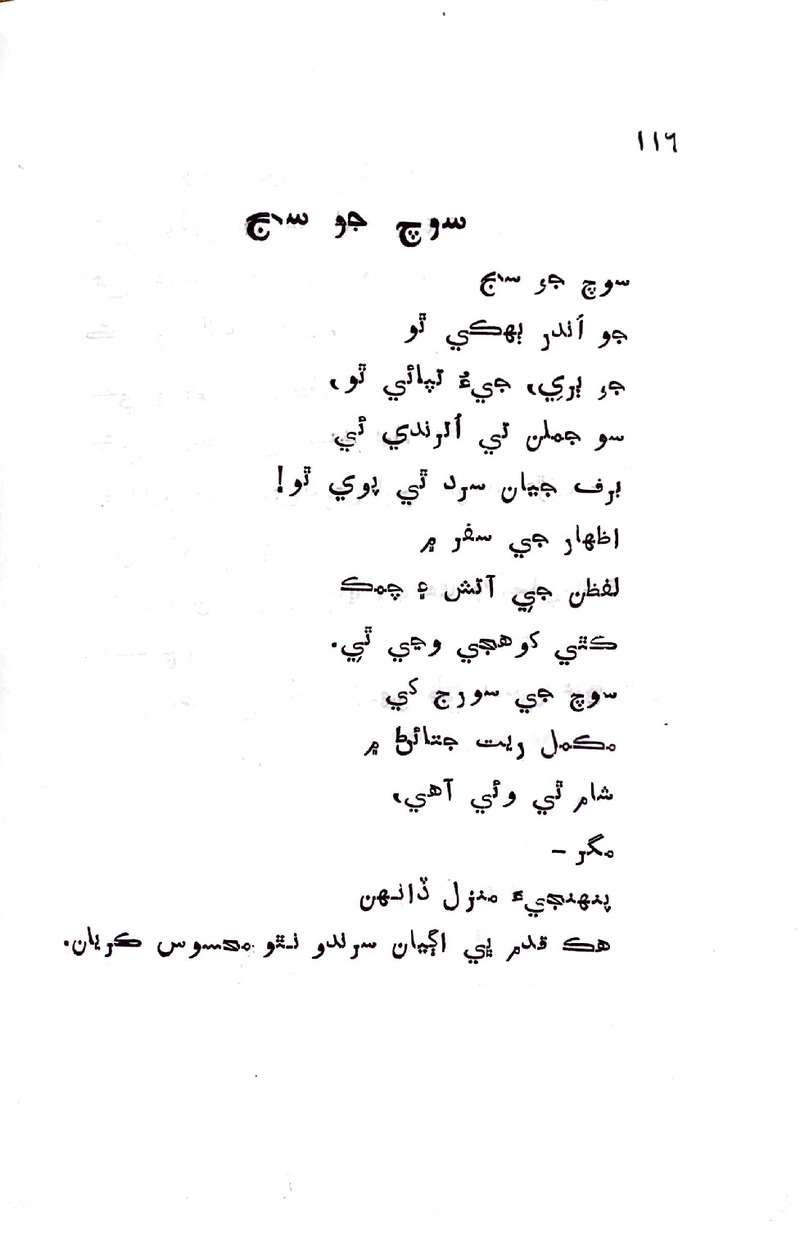 ١١٦
سوچ جو سج
سوچ جو سج
جو اُندر ٻهڪي ٿو
جو ٻري، جيءُ تپائي ٿو،
سو جملن تي اُلرندي ئي
برف جيان سرد ٿي پوي ٿو!
اظهار جي سفر ۾
لفظن جي آتش ۽ چمڪ
ڪٿي کوهجي وڃي ٿي.
سوچ جي سورج کي
مڪمل ريت جتائڻ ۾
شام ٿي وئي آهي،
مگر –
پنهنجيءَ منزل ڏانهن
هڪ قدم ٻي اڳيان سرندو نٿو محسوس ڪريان.